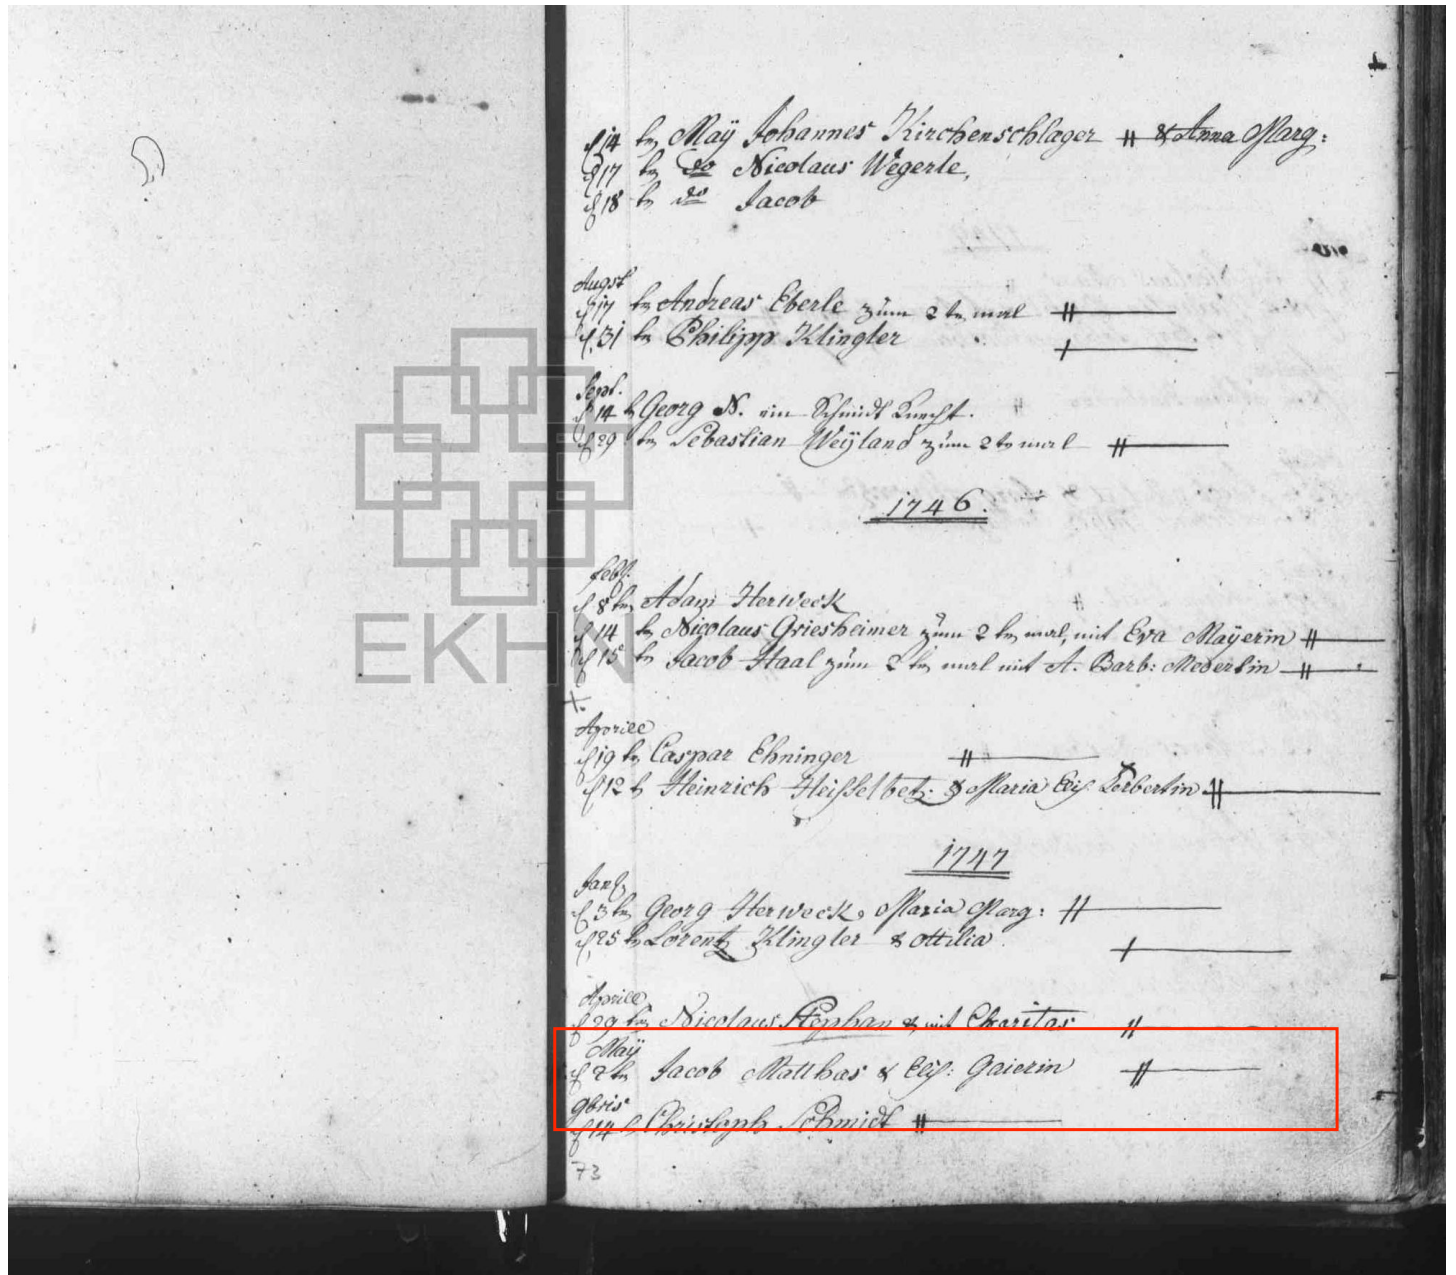 14 ten Maÿ Johannes Kirchenschlager & Anna Marg:
17 ten do Nicolaus Wegerle,
18 ten do Jacob
Augst
17 ten Andreas Eberle zum 2 ten mal
31 ten Philipp Klingler
Sept.
14 Georg N. ein Schmidt Knecht.
29 ten Sebastian Weÿland zum 2 ten mal
1746.
febr.
8 ten Adam Herweck
14 ten Nicolaus Griesheimer zum 2 ten mal, mit Eva Maÿerin
15 ten Jacob Haal zum 2 ten mal mit A. Barb: Mederlin
EKHN
Aprill
19 ten Caspar Ehninger
12 Heinrich Heisselbetz & Maria Elis. Kerbertin
1747
Jan.
3 ten Georg Herweck, Maria Marg:
25 Lorentz Klingler & Ottilia.
Aprill
29 ten Nicolaus Stephan & mit Charitas
Maÿ
2 ten Jacob Matthas & Elis: Gaierin
9bris
14 Christoph Schmidt
73